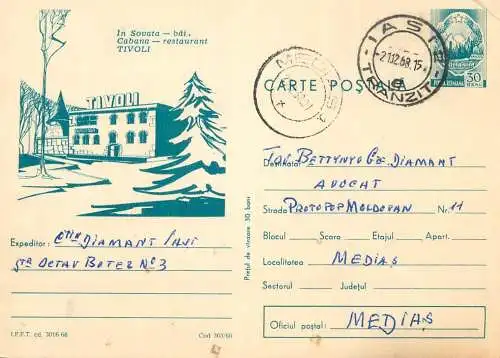 In Sovata — băi.
Cabana — restaurant
TIVOLI
TIVOLI
CARTE POȘTALĂ
IAȘI
21.12.68.15
TRANZIT
MEDIAȘ
30
Destinatar
DIAMANT
AVOCAT
Strada PROTOPOP MOLDOVAN Nr. 11
Blocul Scara Etajul Apart.
Localitatea MEDIAȘ
Sectorul Județul
Oficiul poștal: MEDIAȘ
Expeditor: DIAMANT
STR OCTAV BOTEZ No 3
Prețul de vînzare 30 bani
I.P.F.T. ed. 3016-68
Cod 303/68